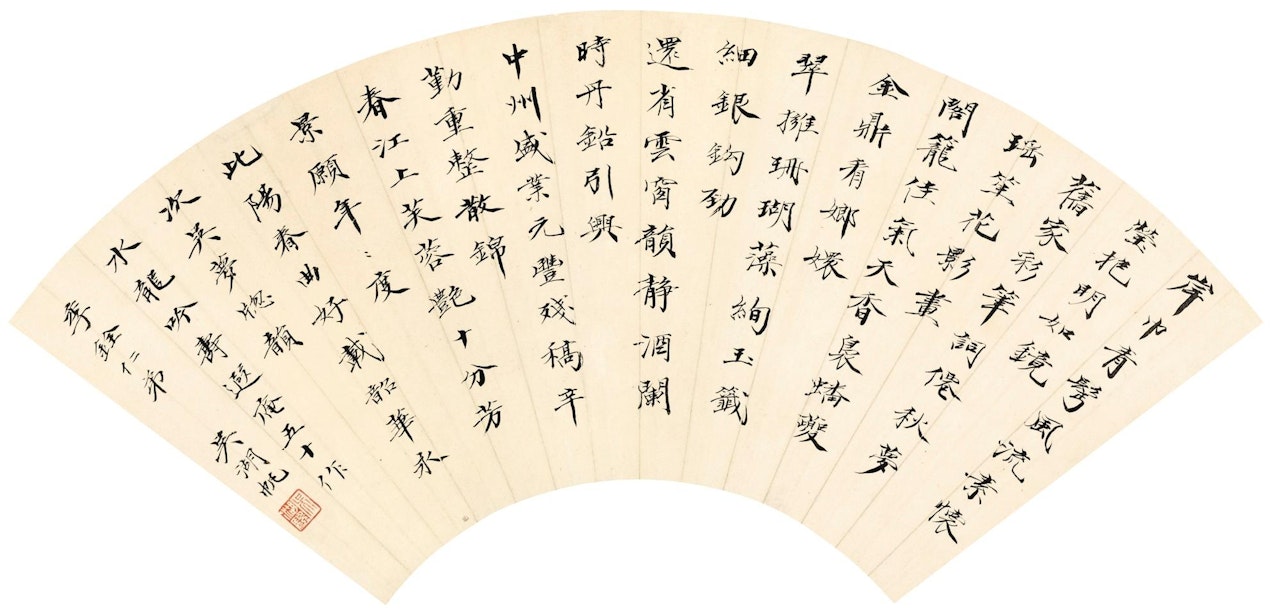 岸巾青鬢風流素懷
瑩明如鏡
舊家彩筆詞僊秋夢
瑤笙花影畫
閣籠佳氣天香裊蟠夔
金鼎看嫏嬛
翠擁珊瑚藻絢玉籤
細銀鈎勁
還省雲窗韻靜酒闌
時丹鉛引興
中州盛業元豐殘稿辛
勤重整散錦
春江上芙蓉艷十分芳
景願年〻度
此陽春曲好載韶華永
次吳夢窗韻
水龍吟壽遐庵五十作
季銓仁弟
吳湖帆